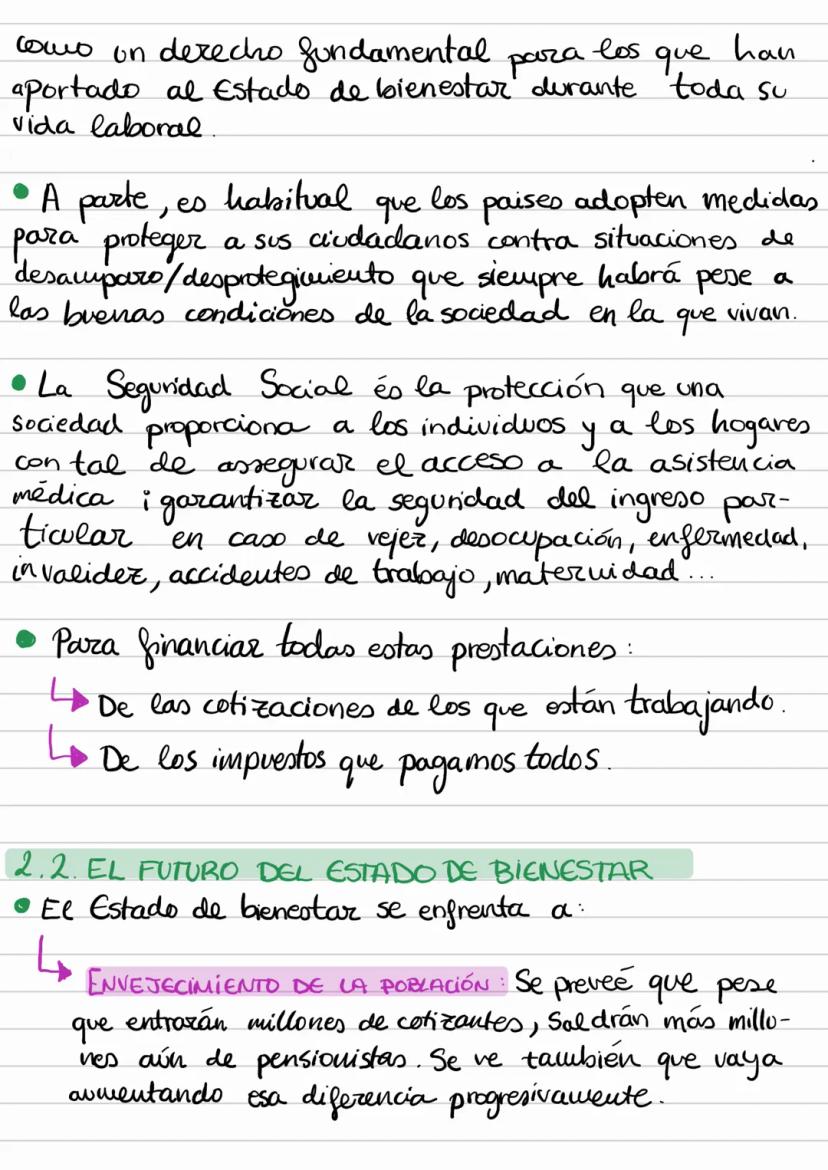 como un derecho fundamental para los que han
aportado al Estado de bienestar durante toda su
vida laboral.
• A parte, es habitual que los paises adopten medidas
para proteger a sus ciudadanos contra situaciones de
desamparo/desprotegimiento que siempre habrá pese a
las buenas condiciones de la sociedad en la que vivan.
• La Seguridad Social és la protección que una
sociedad proporciona a los individuos y a los hogares
con tal de assegurar el acceso a la asistencia
médica i garantizar la seguridad del ingreso par-
ticular en caso de vejez, desocupación, enfermedad,
invalidez, accidentes de trabajo, maternidad...
• Para financiar todas estas prestaciones:
↳ De las cotizaciones de los que están trabajando.
↳ De los impuestos que pagamos todos.
2.2. EL FUTURO DEL ESTADO DE BIENESTAR
• El Estado de bienestar se enfrenta a:
↳ ENVEJECIMIENTO DE LA POBLACIÓN: Se preveé que pese
que entrarán millones de cotizantes, saldrán más millo-
nes aún de pensionistas. Se ve también que vaya
aumentando esa diferencia progresivamente.